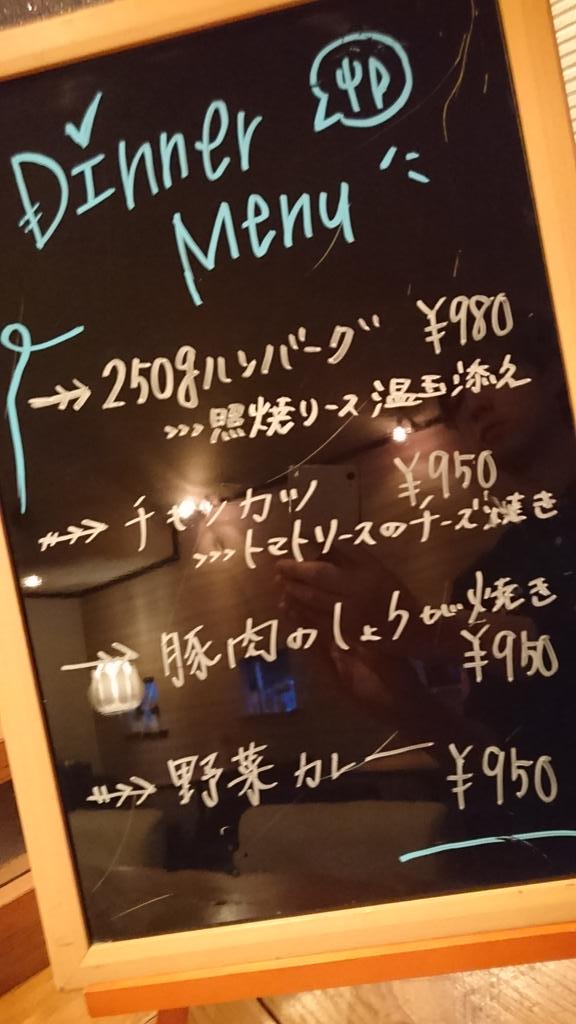 Dinner
Menu
250gハンバーグ ¥980
>>> 照焼ソース 温玉添え
チキンカツ ¥950
>>> トマトソースのチーズ焼き
豚肉のしょうが焼き
¥950
野菜カレー ¥950